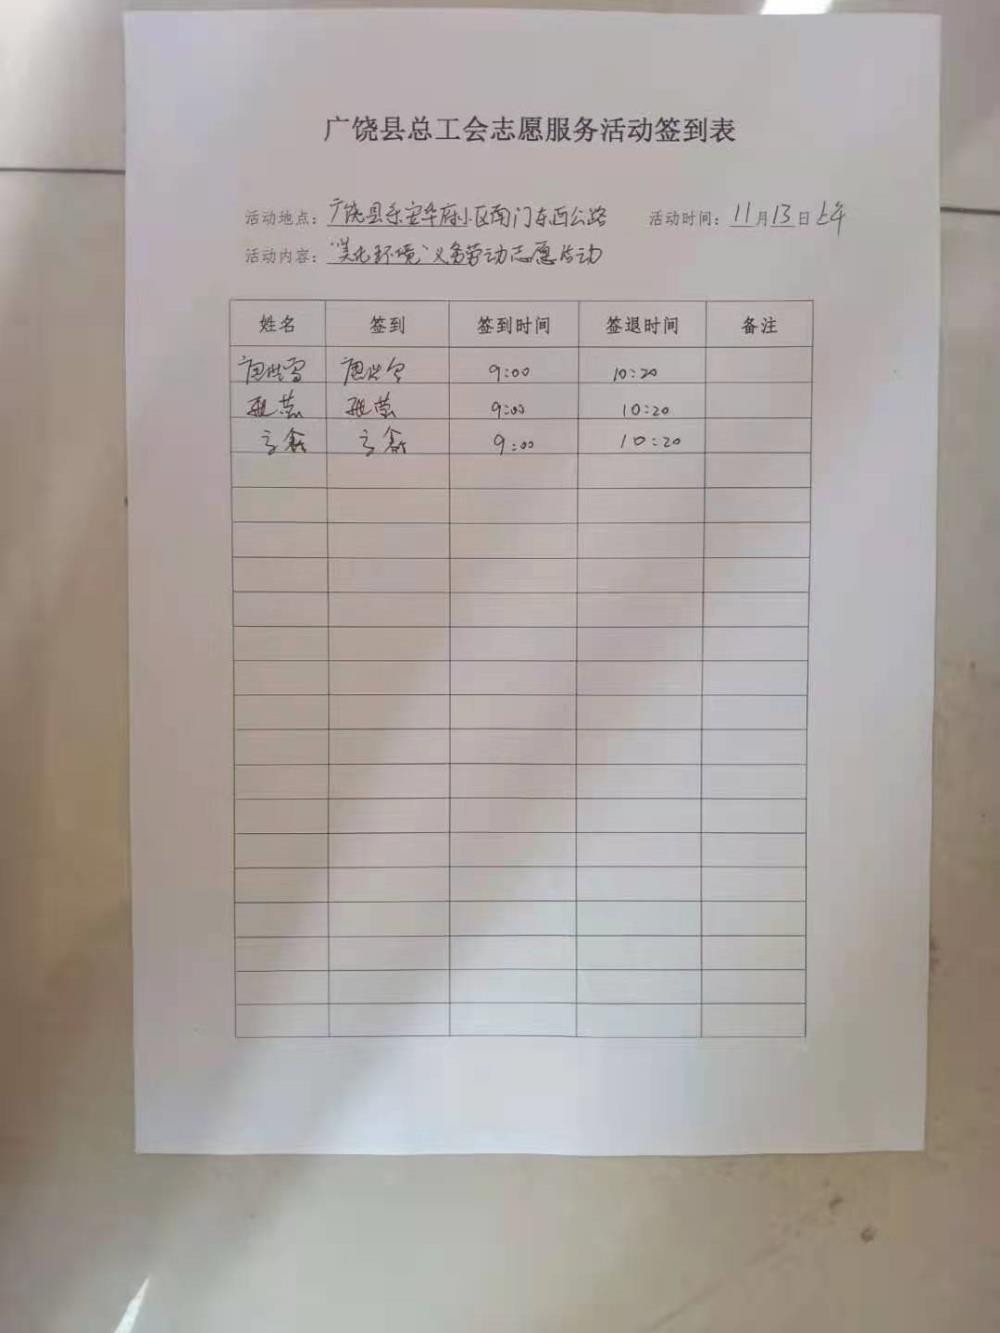 广饶县总工会志愿服务活动签到表
活动地点：广饶县乐安华府小区南门东西公路 活动时间：11月13日上午
活动内容："美化环境"义务劳动志愿活动
姓名 签到 签到时间 签退时间 备注
9:00 10:20
9:00 10:20
9:00 10:20